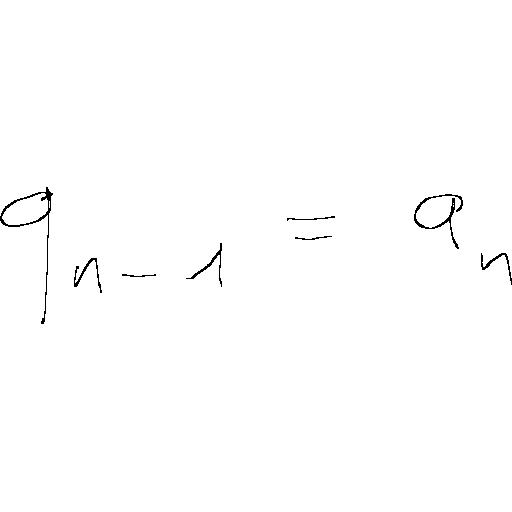 q_{n-1} = a_n